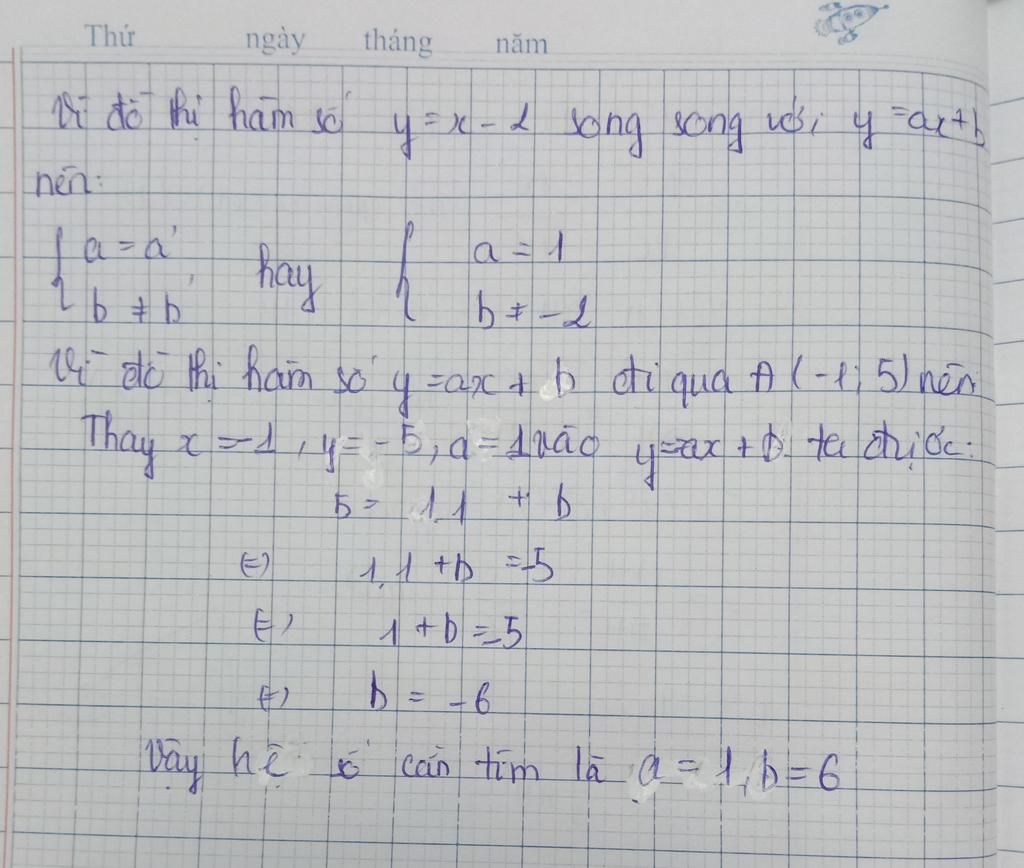 Thứ ngày tháng năm
Vì đồ thị hàm số y = x - 2 song song với y = ax + b
nên:
{ a = a' hay { a = 1
b ≠ b' b ≠ -2
Vì đồ thị hàm số y = ax + b đi qua A (-1; 5) nên
Thay x = -1, y = -5, a = 1 vào y = ax + b ta được:
5 = 1.1 + b
⇔ 1.1 + b = -5
⇔ 1 + b = -5
⇔ b = -6
Vậy hệ số cần tìm là a = 1, b = 6